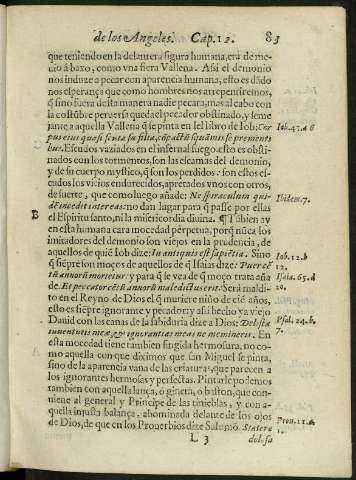 de los Angeles. Cap. 12. 83
que teniendo en la delantera figura humana, era de me-
dio á baxo, como vna fiera Vallena. Assi el demonio
nos induze a pecar con aparencia humana, esto es dãdo
nos esperança que como hombres nos arrepentiremos,
q̃ sino fuera desta manera nadie pecara, mas al cabo con
la costũbre peruersa queda el pecador obstinado, y seme
jante a aquella Vallena q̃ se pinta en sel libro de Iob: Cor
pus eius quasi scuta fusilia, cõpactũ squamis se prementi-
bus. Escudos vaziados en el infernal fuego: esto es obsti-
nados con los tormentos, son las escamas del demonio,
y de su cuerpo mystico, q̃ son los perdidos: son estos es-
cudos los vicios endurecidos, apretados vnos con otros,
de suerte, que como luego añade: Ne spiraculum qui-
dẽ incedit inter eas: no dan lugar para q̃ passe por ellas
el Espiritu santo, ni la misericordia diuina. ¶ Tãbien ay
en esta humana cara mocedad perpetua, porq̃ nũca los
imitadores del demonio son viejos en la prudencia, de
aquellos de quiẽ Iob dize: In antiquis est sapiẽtia. Sino
q̃ siẽpre son moços de aquellos de q̃ Isaias dize: Puer cẽ
tũ annorũ morietur: y para q̃ se vea de q̃ moço trata aña
de. Et peccator cẽtũ annorũ maledictus erit. Será maldi-
to en el Reyno de Dios el q̃ muriere niño de ciẽ años,
esto es siẽpre ignorante y pecador: y assi hecho ya viejo
Dauid con las canas de la sabiduria dize a Dios: Delicta
iuuentutis meæ, & ignorantias meas ne memineris. En
esta mocedad tiene tambien fingida hermosura, no co-
mo aquella con que diximos que san Miguel se pinta,
sino de la aparencia vana de las criaturas, que parecen a
los ignorantes hermosas y perfectas. Pintarle podemos
tambien con aquella lança, ò gineta, o baston, que con-
uiene al general y Principe de las tinieblas, y con a-
quella injusta balança, abominada delante de los ojos
de Dios, de que en los Prouerbios dize Salomõ. Statera
L 3 dolosa
Iob. 41. a 6
Ibidem. 7.
B
Iob. 12. b
12.
Isaia. 65. d
20.
Psal. 24. b.
7.
Prou. 11. a
1.